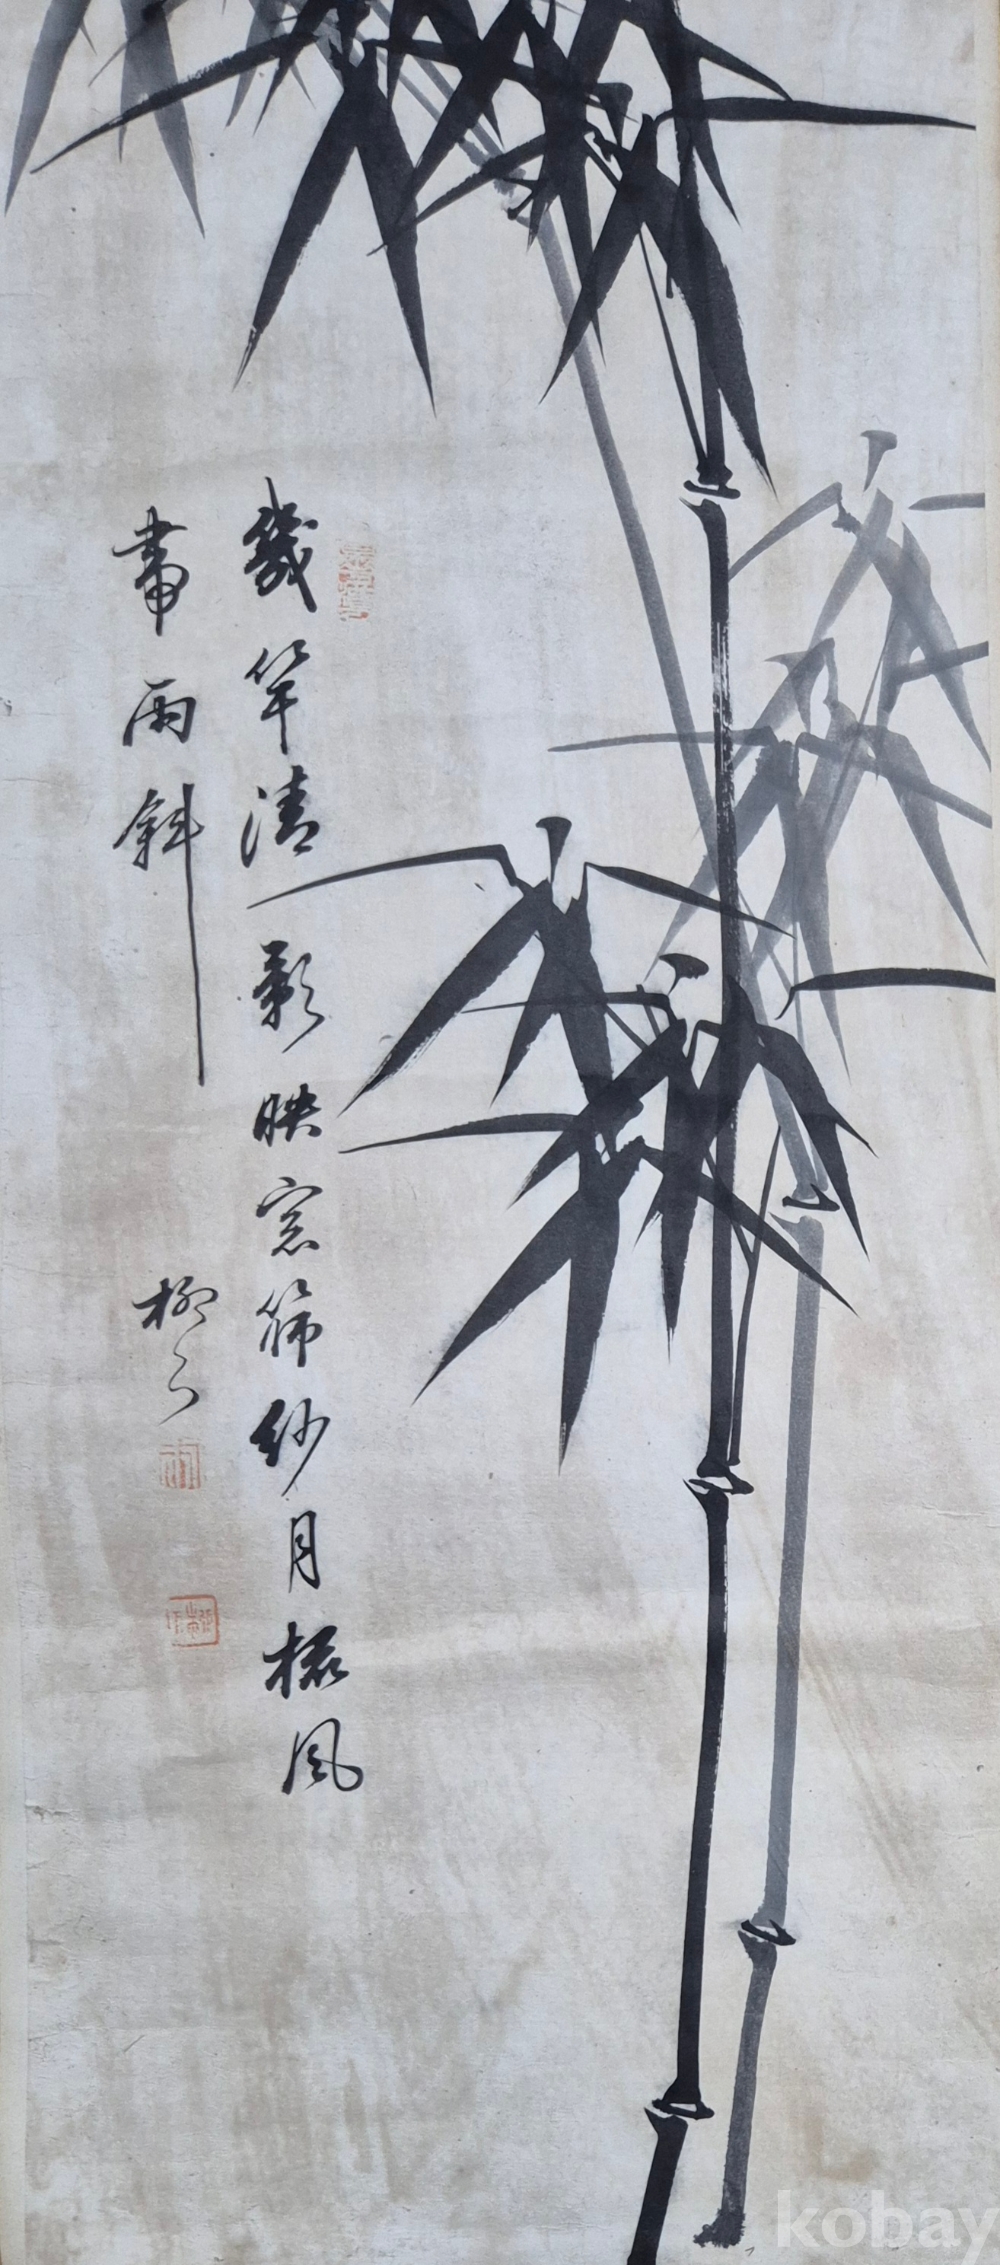 幾竿清影映窓篩紗月梳風
帶雨斜
柳
kobay